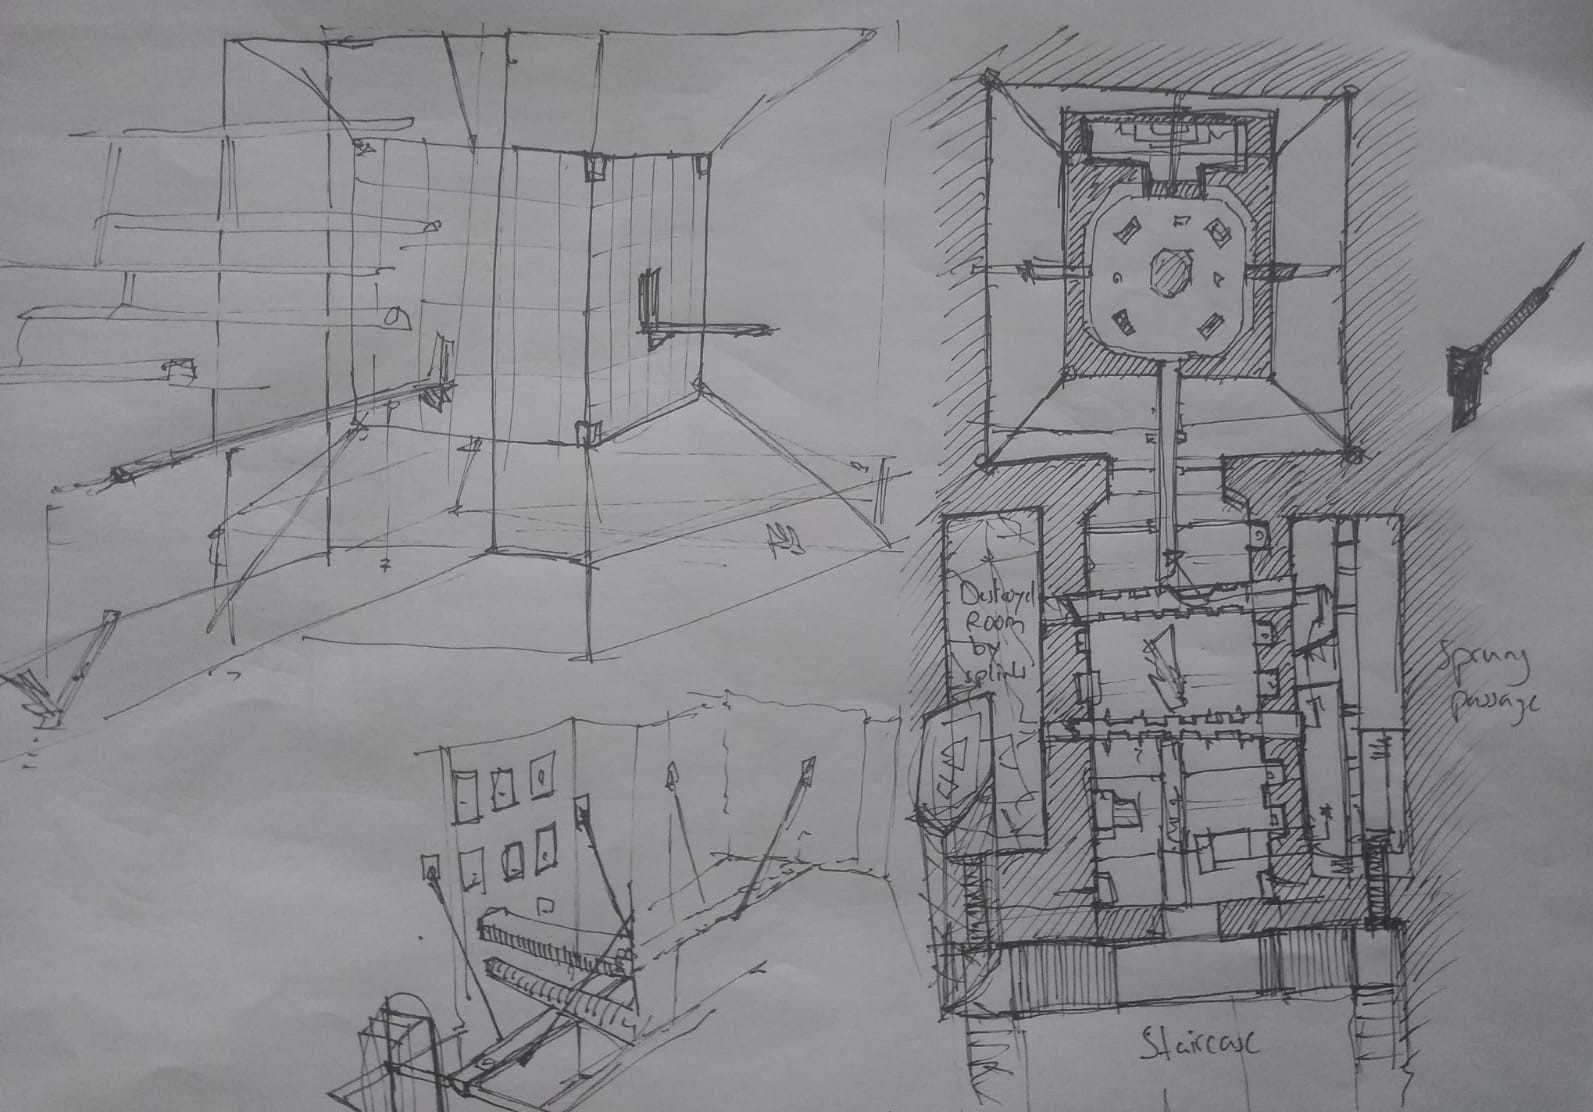 Destroyed
Room
by
splints
Sprung
passage
Staircase